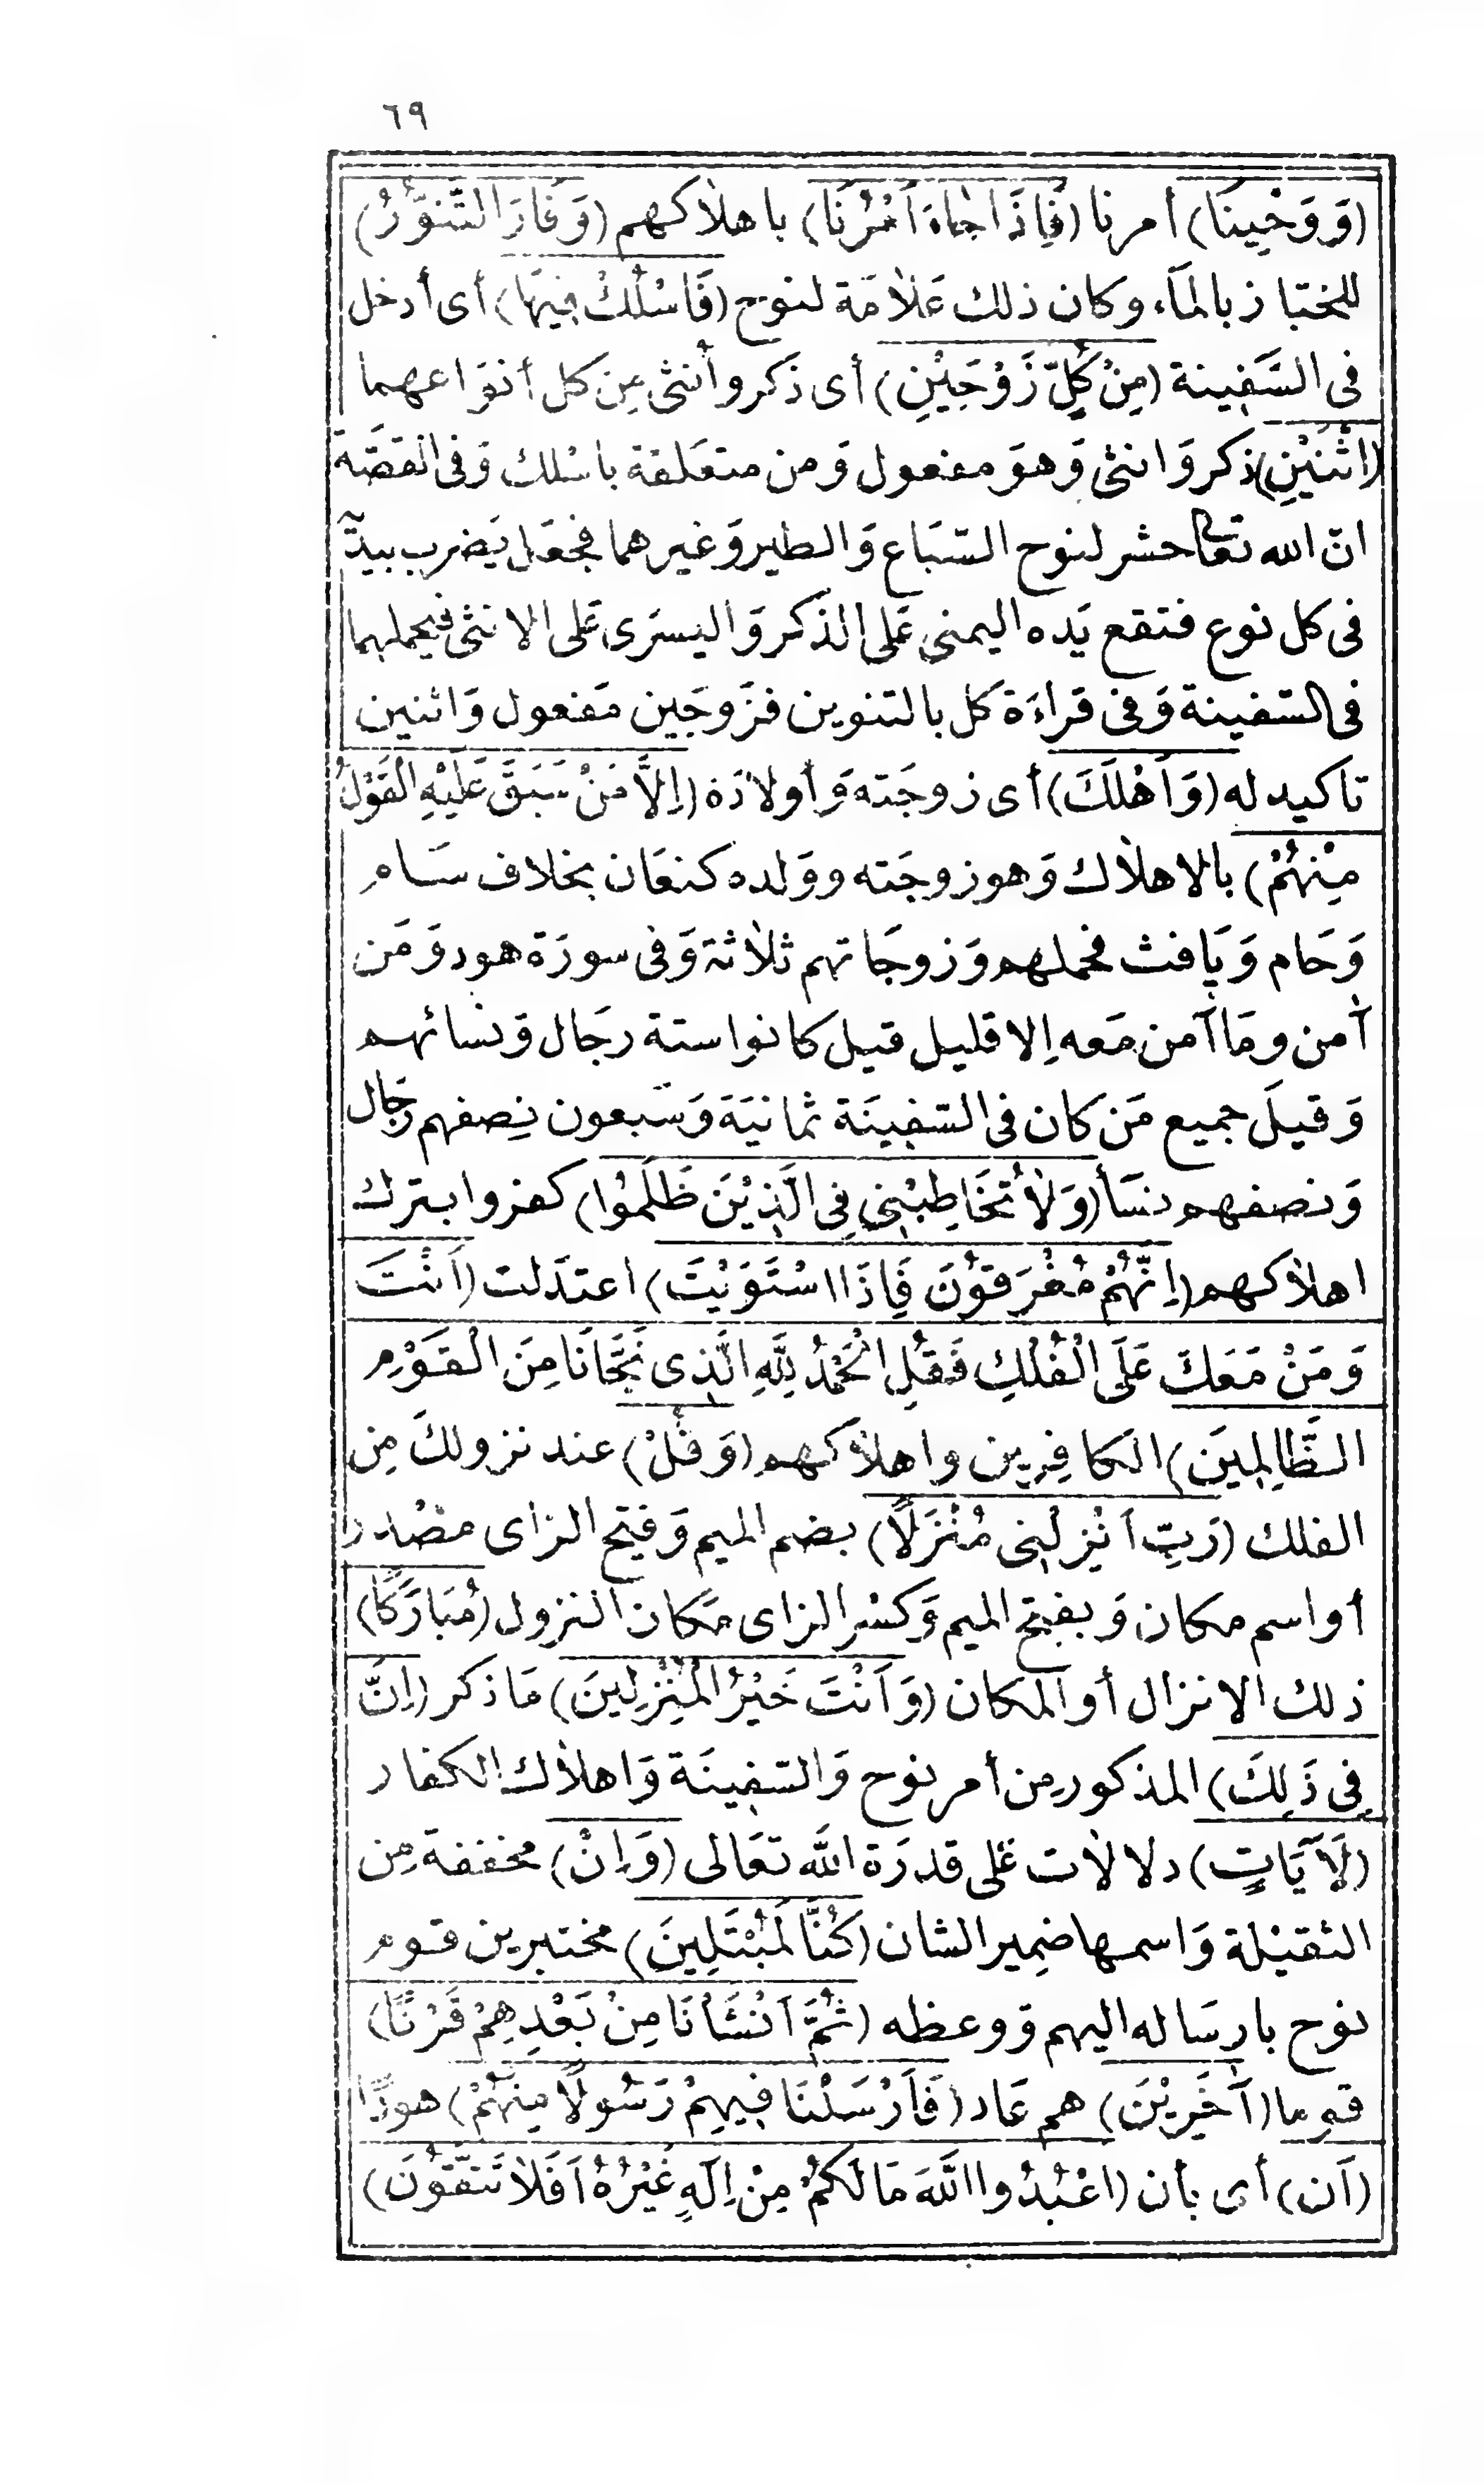 ٦٩
(وَوَحْيِنَا) أمرنا (فَاِذَا جَاءَ اَمْرُنَا) باهلاكهم (وَفَارَ التَّنُّوْرُ)
للخباز بالماَء وكان ذلك عَلامَة لنوح (فَاسْلُكْ فِيهَا) أى أدخل
فى السَّفِينة (مِنْ كُلٍّ زَوْجَيْنِ) أى ذَكر وأنثى مِن كل أنوَاعهما
(اثْنَيْنِ) ذكر وَانثى وَهوَ مفعول وَمن متعَلقة باسْلك وَفى القصَّة
انّ الله تعَالى حشر لنوح السّبَاع وَالطير وَغيرهما فجعَل يَضرب بيديه
فى كل نوع فتقع يَده اليمنى عَلى الذكر وَاليسرَى عَلى الانثى فيحملهما
فى السّفينة وَفى قرَاءَة كل بالتنوين فزَوجَين مَفعول وَاثنين
تاكيد له (وَاَهْلَكَ) أى زوجَته وَأولادَه (اِلاَّ مَنْ سَبَقَ عَلَيْهِ الْقَوْلُ
مِنْهُمْ) بالاهلاك وَهو زوجَته ووَلده كنعَان بخلاف سَام
وَحَام وَيَافث فحملهم وَزوجَاتهم ثلاثة وَفى سورَة هود وَمَن
آمن ومَا آمن مَعه اِلا قليل قيل كانوا ستة رجَال وَنسائهم
وَقيلَ جميع مَن كان فى السّفِينَة ثمانيَة وَسَبعون نِصفهم رجَال
وَنصفهم نسَأ (وَلاَ تُخَاطِبْنِي فِى الَّذِيْنَ ظَلَمُوا) كفروا بترك
اهلاكهم (اِنَّهُمْ مُغْرَقُوْنَ فَاِذَا اسْتَوَيْتَ) اعتدَلت (اَنْتَ
وَمَنْ مَعَكَ عَلَى الْفُلْكِ فَقُلِ الْحَمْدُ لِلّهِ الَّذِى نَجَّانَا مِنَ الْقَوْمِ
الظَّالِمِينَ) الكافِرِين واهلاكهم (وَقُلْ) عند نزولكَ مِن
الفلك (رَبِّ اَنْزِلْنِى مُنْزَلاً) بضم الميم وَفتح الزاى مصْدر
أو اسم مكان وَبفتح الميم وَكسْر الزاى مَكان النزول (مُبَارَكًا)
ذلك الانزال أو المكان (وَاَنْتَ خَيْرُ الْمُنْزِلِينَ) مَا ذكر (اِنَّ
فِى ذَلِكَ) المذكور مِن أمر نوح وَالسّفِينَة وَاهلاك الكفار
(لَآيَاتٍ) دلالات عَلى قدرَة الله تعَالى (وَاِنْ) مخففة مِن
الثقيْلة وَاسمها ضمِير الشان (كُنَّا لَمُبْتَلِينَ) مختبرين قوم
نوح بارسَاله اليهم وَوعظه (ثُمَّ اَنْشَأْنَا مِنْ بَعْدِهِمْ قَرْنًا)
قوما (آخَرِيْنَ) هم عَاد (فَاَرْسَلْنَا فِيهِمْ رَسُولاً مِنْهُمْ) هودًا
(اَن) أى بأن (اعْبُدُوا اللّهَ مَالَكُمْ مِنْ اِلَهٍ غَيْرُهُ اَفَلاَ تَتَّقُوْنَ)